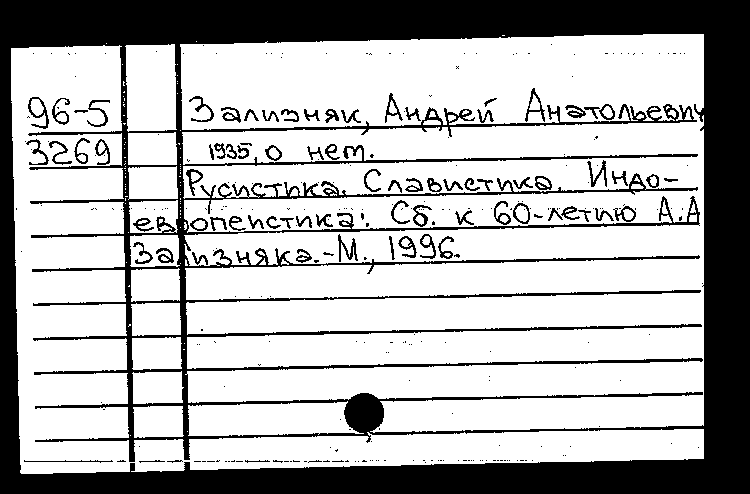 96-5 Зализняк, Андрей Анатольевич,
3269 1935, о нем.
Русистика. Славистика. Индо-
европеистика: Сб. к 60-летию А.А
Зализняка.-М., 1996.